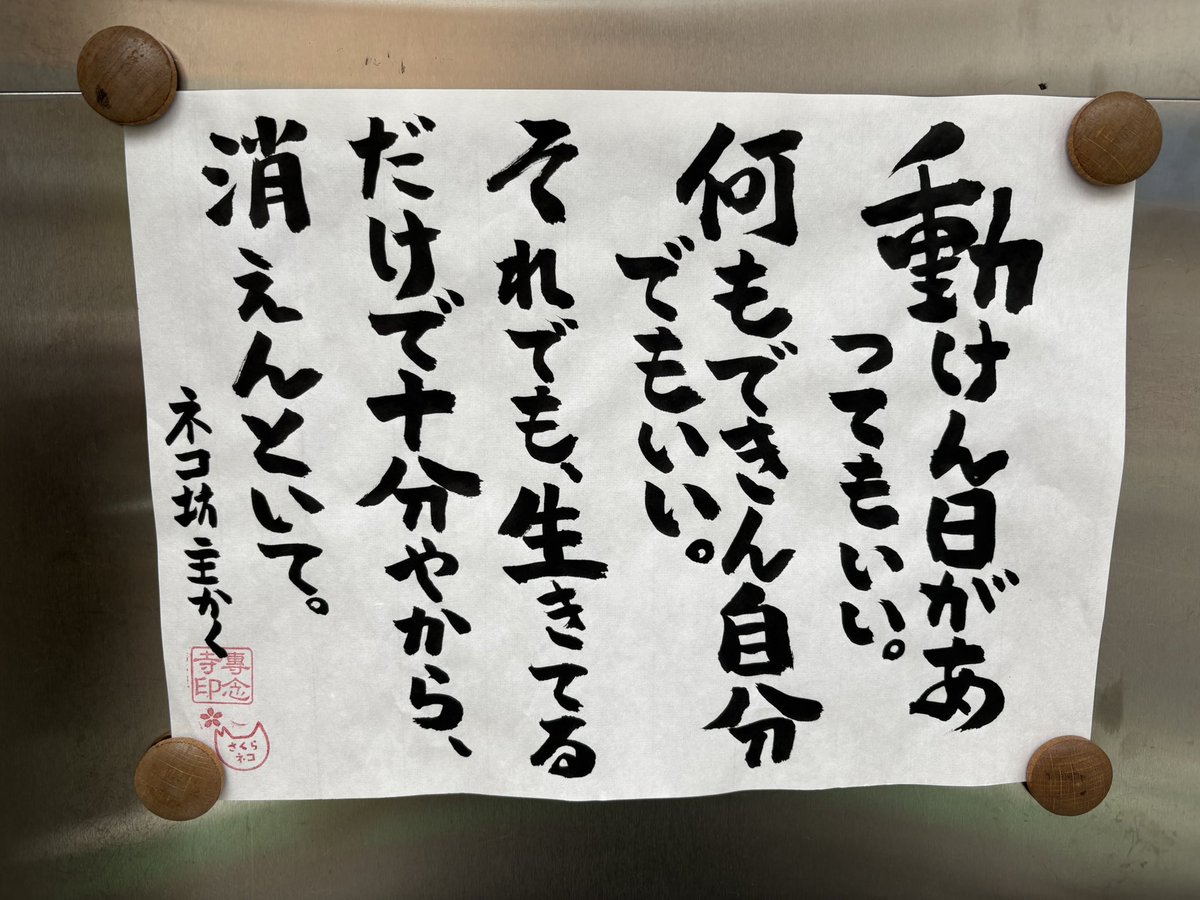 動けん日があ
ってもいい。
何もできん自分
でもいい。
それでも、生きてる
だけで十分やから、
消えんといて。
ネコ坊主かく
專念
寺印
さくら
ネコ